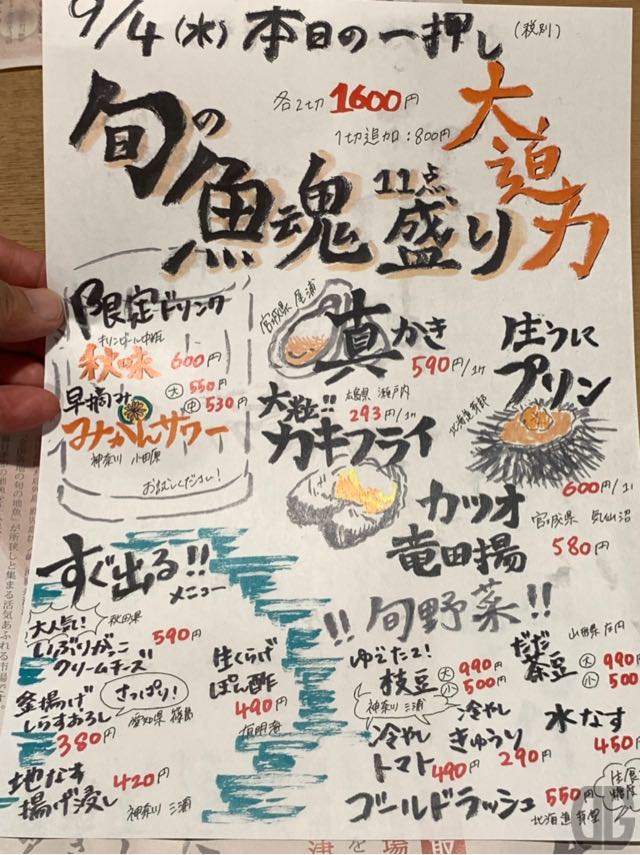 9/4(水) 本日の一押し (税別)
各2切 1600円
1切追加:800円
旬の魚魂 11点盛り
大迫力
限定ドリンク
秋味 600円
早摘み
みかんサワー
大 550円
中 530円
神奈川 小田原
お試しください!
宮城県 尾浦
真かき
590円/1ヶ
広島県 瀬戸内
大粒!! 293円/1ヶ
カキフライ
生うに
プリン
北海道
600円/1ヶ
カツオ
竜田揚
宮城県 気仙沼
580円
すぐ出る!!
メニュー
大人気! 秋田県
いぶりがっこ
クリームチーズ
590円
釜揚げ
しらすおろし
さっぱり!
愛知県 篠島
380円
地なす
揚げ浸し
420円
神奈川 三浦
生くらげ
ぽん酢
490円
有明海
!!旬野菜!!
ゆでたて!
枝豆
大 990円
小 500円
神奈川 三浦
だだ
茶豆
山形県 庄内
大 990円
小 500円
冷やし
トマト 490円
冷やし
きゅうり
290円
水なす
450円
ゴールドラッシュ 550円
北海道